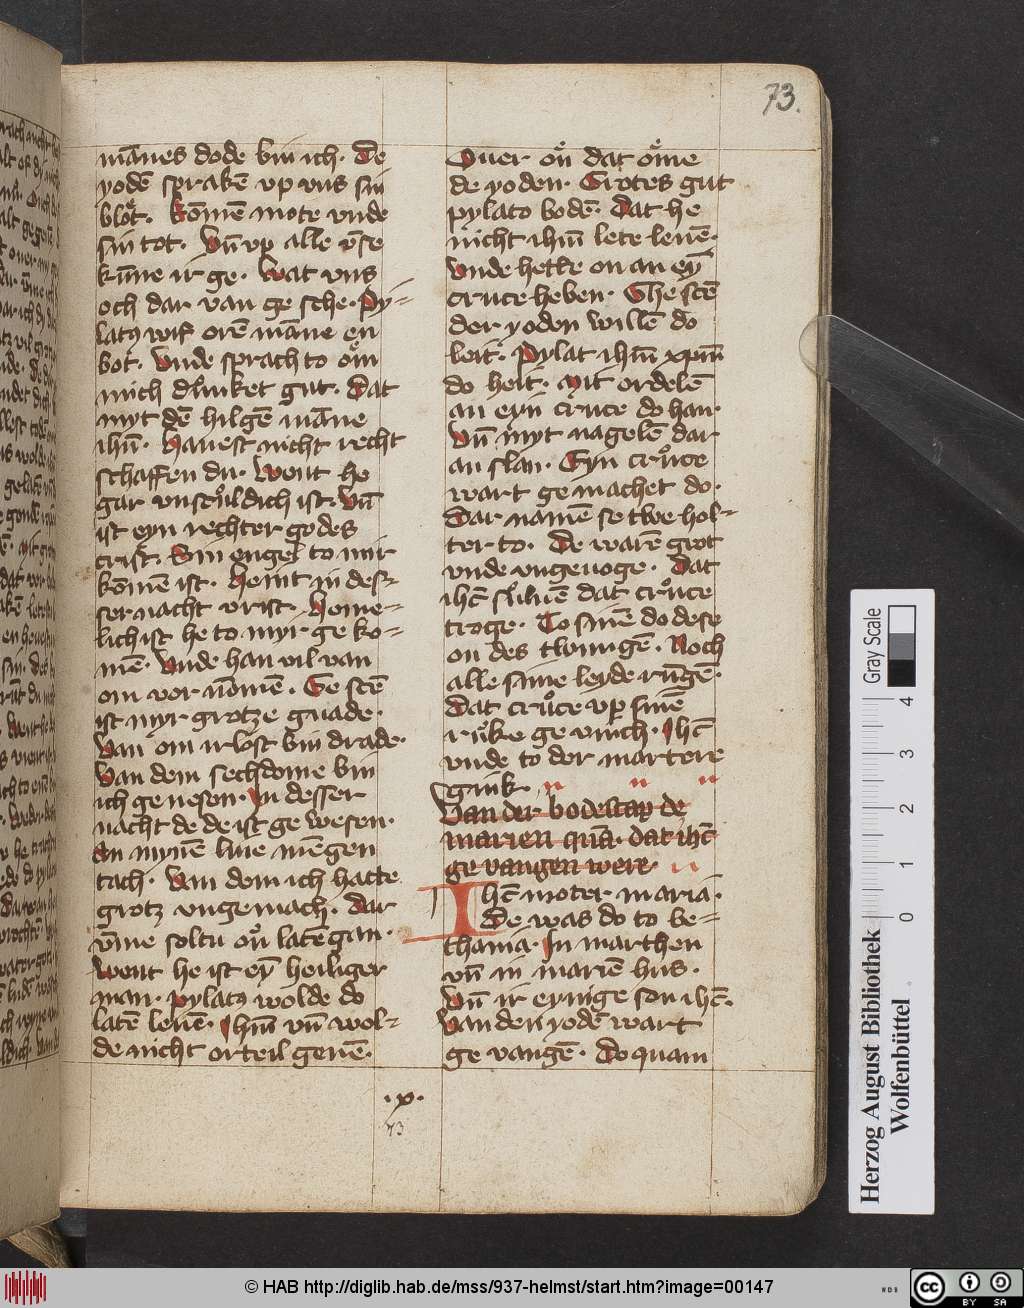 73.
mānes dode bin ich. De
yodē sprakē vp vns sin
blöt. komē mote vnde
sin tot. Vn̄ vp alle v̄se
kūne ir ge. Wat vns
och dar van ge sche. Py-
latꝯ wif orē māne en
bot. Vnde sprach to öm
mich dunket gut. Dat
myt dē hilgē māne
ihm̄. hauest nicht recht
schaffen du. Went he
gar vnscůldich ist. Vn̄
ist eyn rechter godes
crist. Ein engel to mir
komē ist. heint in des-
ser nacht vrist. heime-
lich ist he to myr ge ko-
mē. Vnde han vil van
om vor nomē. Ge scē
ist myr grotze gnade.
Van om irlost bin drade.
Van dem sechdome bin
ich ge nesen. In desser
nacht de de ist ge wesen.
An mynē liue mēgen
tach. Van dem ich hatte
grotz vngemach. Dar
v̄me soltu on̄ latē gan.
Went he ist eȳ heiliger
man. pylatꝯ wolde do
latē leuē. Ihm̄ vn̄ wol-
de nicht orteil geuē.
Ouer on̄ dat öme
de yoden. Grotes gut
pylato bodē. Dat he
nicht ihm̄ lete leuē.
Vnde hette on an eȳ
cruce heben. Ghe scē
der yoden willē do
leit. Pylat ihm̄ xpm̄
do heit. Mit ordelē
an eyn cruce do han.
Vn̄ myt nagelē dar
an slan. Eyn crůce
wart ge machet do.
Dar namē se twe hol-
ter to. De warē grot
vnde vngeuoge. Dat
ihc̄ sůluē dat crůce
troge. To sinē do dese
on des twungē. Noch
alle sine leyde rungē.
Dat crůce vp sinē
růke ge vnich. Ihc̄
vnde to der martere
gink.
Van der bodescap de
marien quā. dat ihc̄
ge vangen were.
Ihc̄ moter mariā.
De was do to be-
thaniā. In marthen
vn̄ in mariē hus.
Vn̄ ir eynige son ihc̄.
Van den yodē wart
ge vangē. Do quam
.x.
73
Gray Scale
0 1 2 3 4
Herzog August Bibliothek
Wolfenbüttel
© HAB http://diglib.hab.de/mss/937-helmst/start.htm?image=00147
WDB
cc BY SA